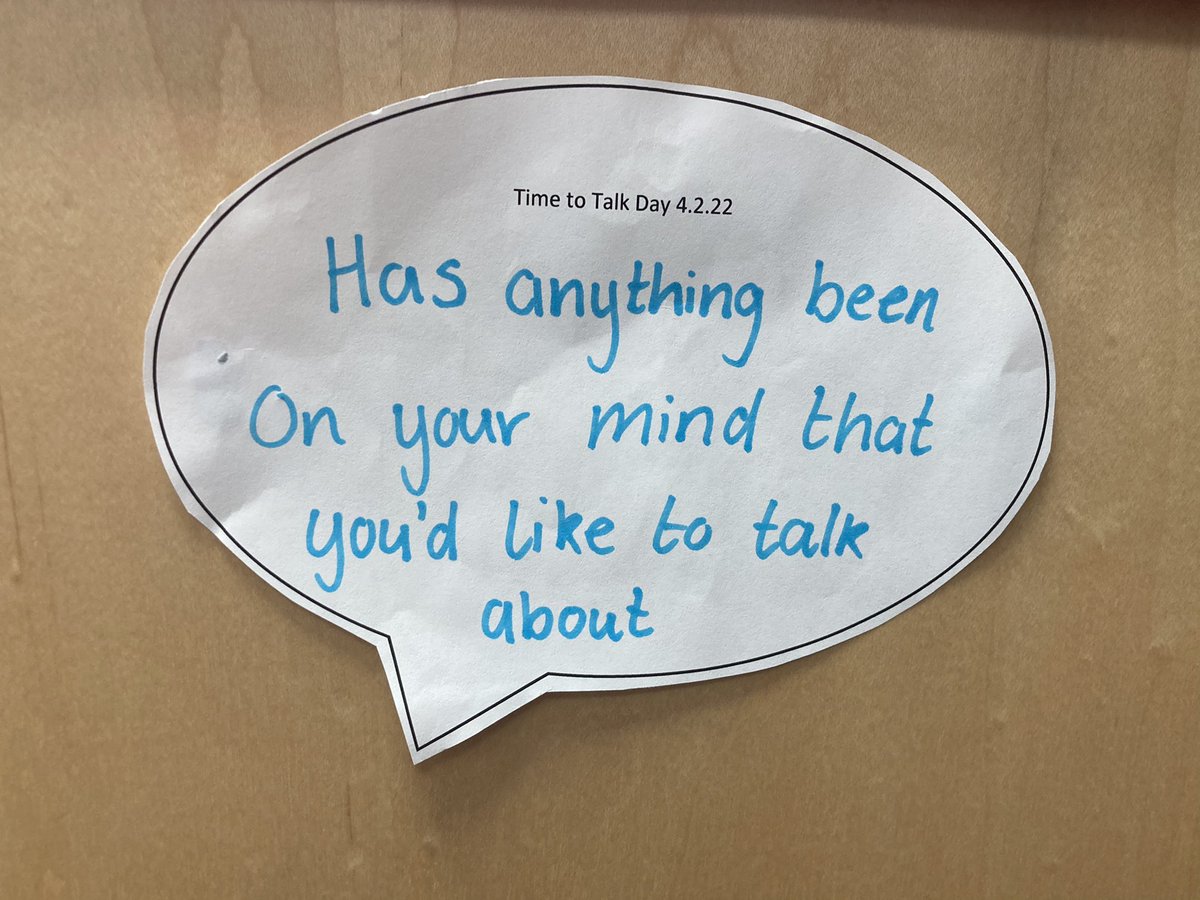 Time to Talk Day 4.2.22
Has anything been
On your mind that
you'd like to talk
about